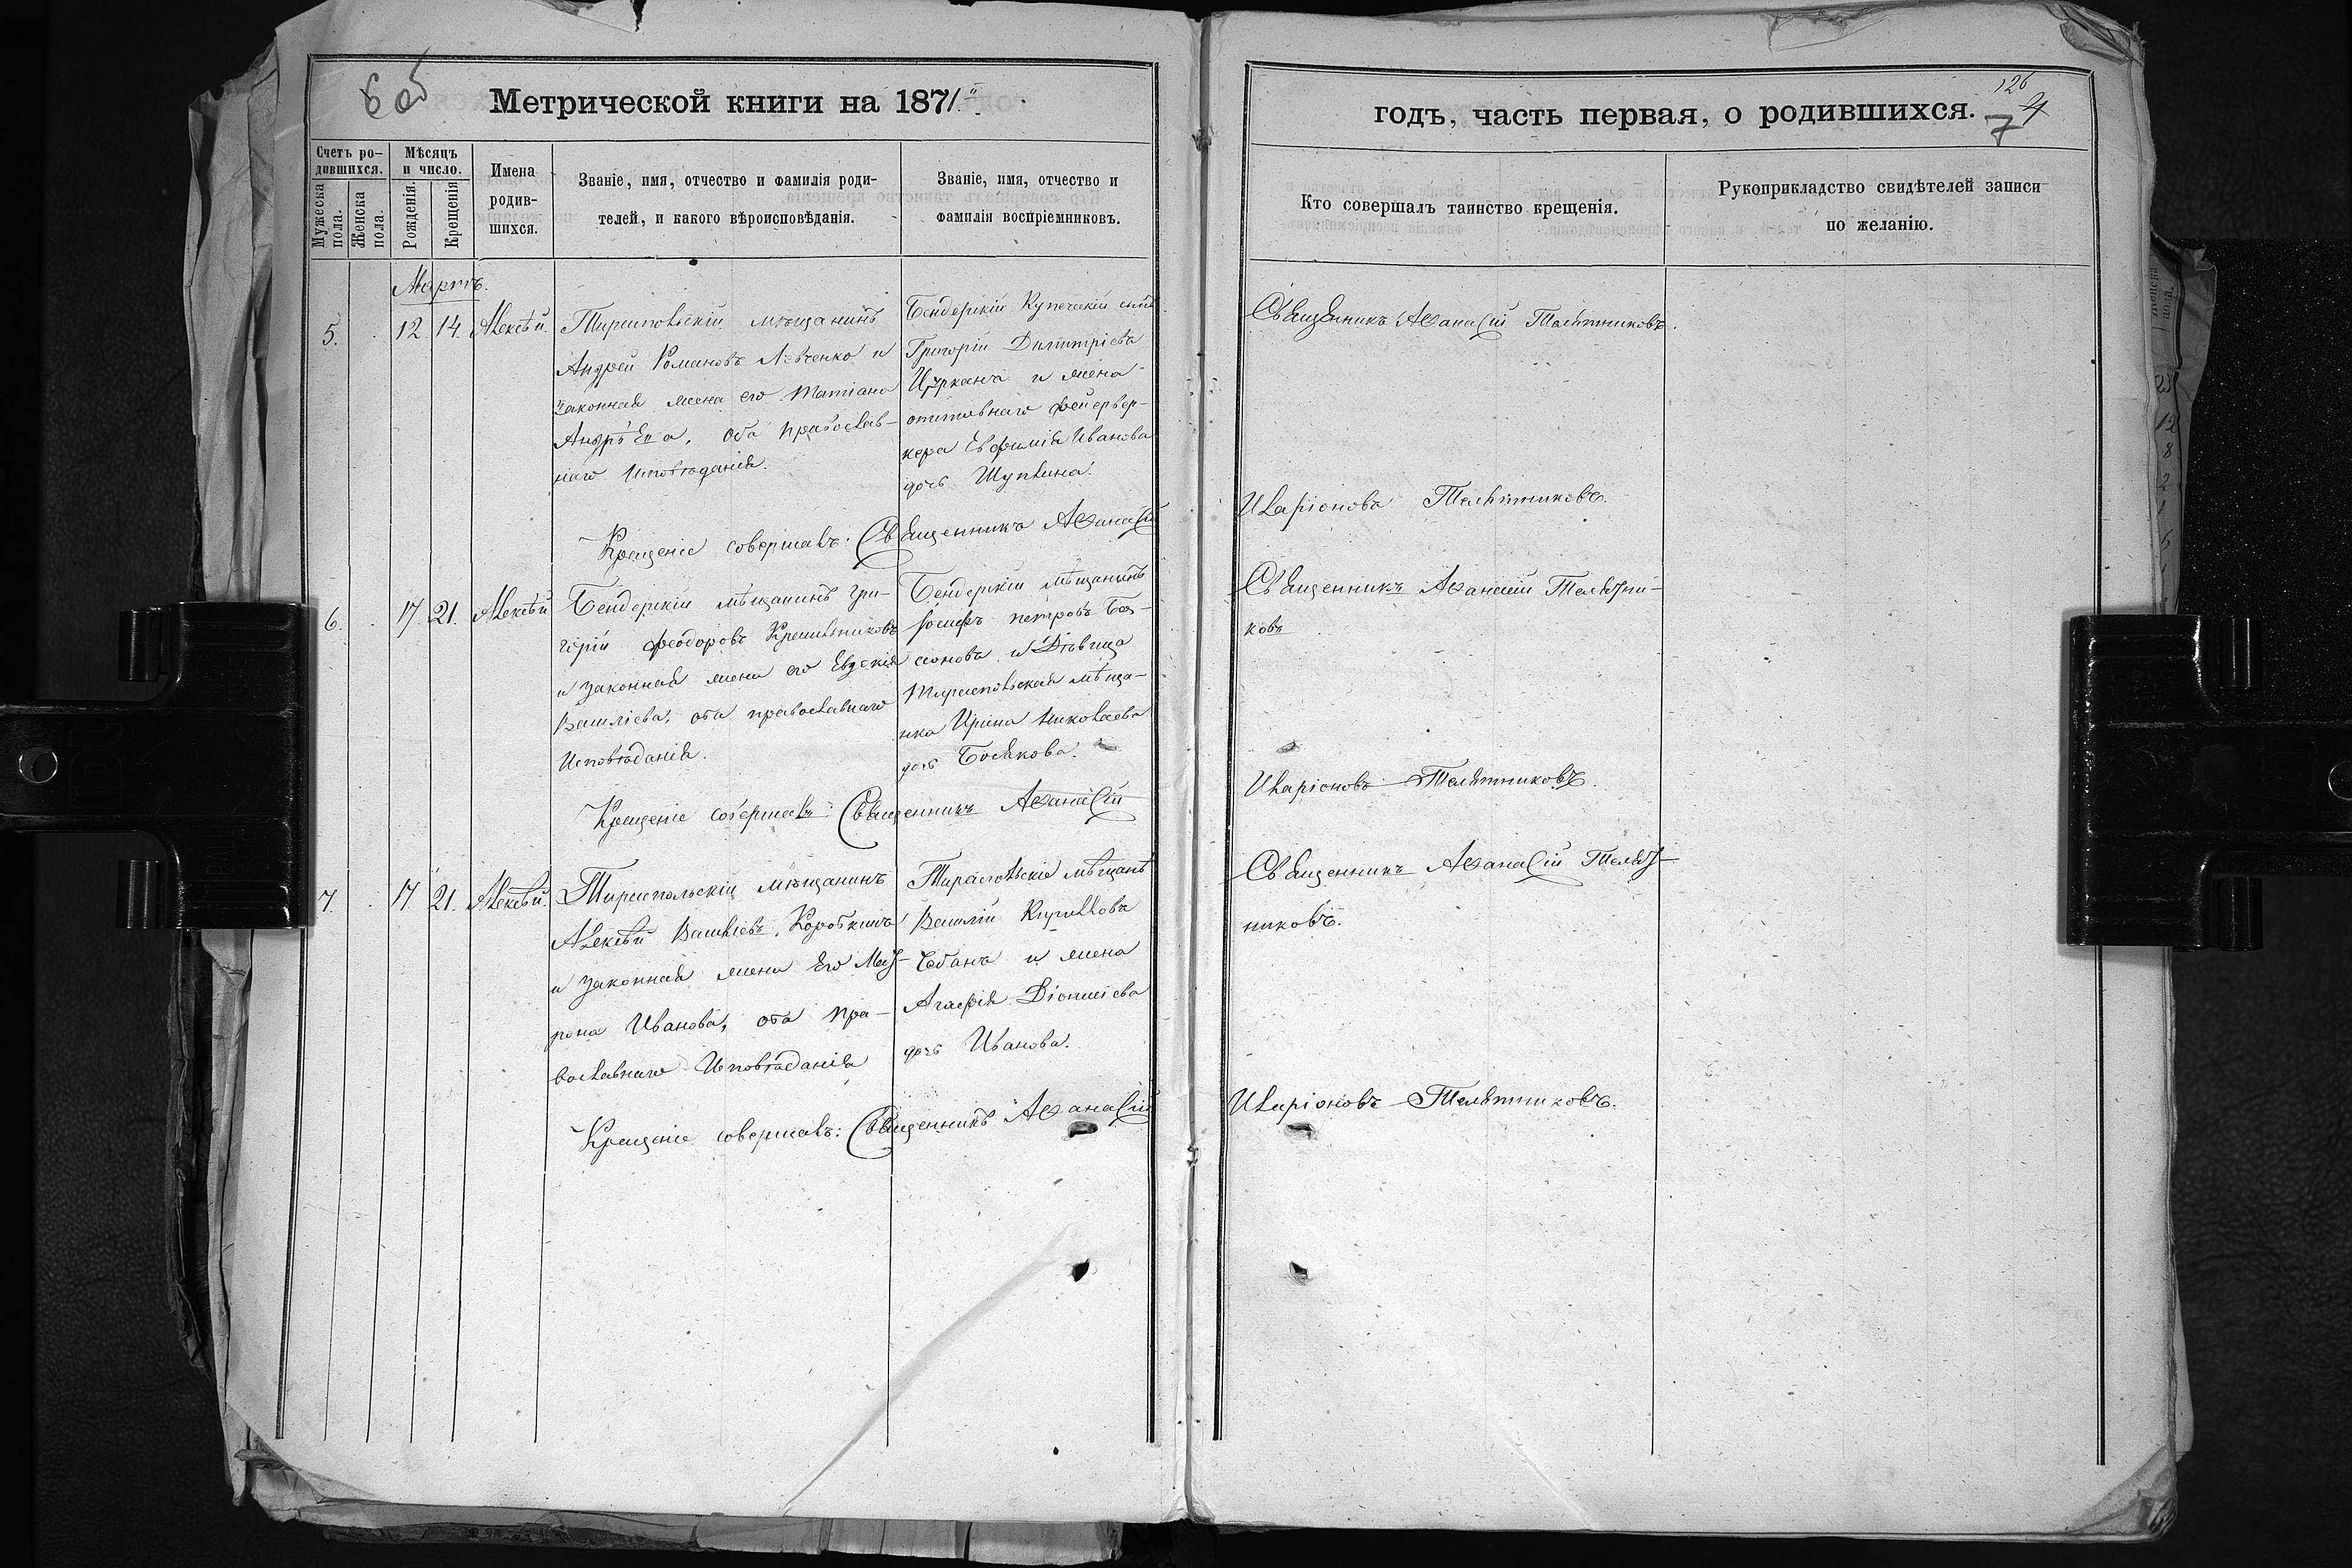 6 об
Метрической книги на 1871
Счетъ ро-
дившихся.
Мужеска пола.
Женска пола.
Мѣсяцъ
и число.
Рожденія.
Крещенія
Имена
родив-
шихся.
Званіе, имя, отчество и фамилія роди-
телей, и какого вѣроисповѣданія.
Званіе, имя, отчество и
фамилія воспріемниковъ.
Мартъ.
5. 12. 14. Алексѣй.
Тираспольскій мѣщанинъ
Андрей Романовъ Левченко и
законная жена его Татіана
Андрѣева, оба православ-
наго Исповѣданія.
Бендерскій Купеческій сынъ
Григорій Димитріевъ
Цуркана и жена
отставнаго фейервер-
кера Евфимія Иванова
дочь
Крещеніе совершалъ: Священникъ Аѳанасій
6. 17 21. Алексѣй
Бендерскій мѣщанинъ Гри-
горій Феодоровъ
и законная жена его Евдокія
Василіева, оба православнаго
Исповѣданія.
Бендерскій мѣщанинъ
Іосифъ Петровъ
и Дѣвица
Тираспольская мѣща-
нка Ирина Николаева
дочь Босякова.
Крещеніе совершалъ: Священникъ Аѳанасій
7. 17. 21. Алексѣй.
Тираспольскій мѣщанинъ
Алексѣй Василіевъ Короткинъ
и законная жена Его Мат-
рона Иванова, оба пра-
вославнаго Исповѣданія
Тираспольскіе мѣщане
Василій Кирилловъ
Чебанъ и жена
Агафія Діонисіева
дочь Иванова.
Крещеніе совершалъ: Священникъ Аѳанасій
годъ, часть первая, о родившихся.
126
7
Кто совершалъ таинство крещенія.
Рукоприкладство свидѣтелей записи
по желанію.
Священникъ Аѳанасій Телятниковъ.
Иларіоновъ Телятниковъ.
Священникъ Аѳанасій Телятни-
ковъ
Иларіоновъ Телятниковъ.
Священникъ Аѳанасій Телят-
никовъ.
Иларіоновъ Телятниковъ.